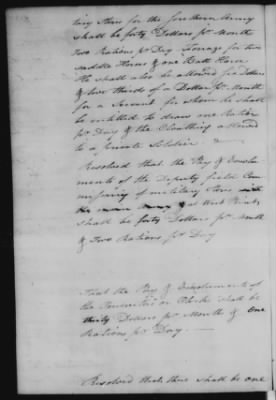 tary Stores for the Southern Army
shall be forty Dollars pr Month
Two Rations pr Day Forrage for two
saddle Horses & one Batt Horse
He shall also be allowed six Dollars
& two thirds of a Dollar pr Month
for a Servant for whom he shall
be entitled to draw one Ration
pr Day & the Cloathing allowed
to a private Soldier
Resolved that the Pay & Emolu-
ments of the Deputy field Com-
missary of military Stores
at West Point
shall be forty Dollars pr Month
& Two Rations pr Day
That the Pay & Emoluments of
the Conductor or Clerk shall be
thirty Dollars pr Month & one
Rations pr Day
Resolved that there shall be one